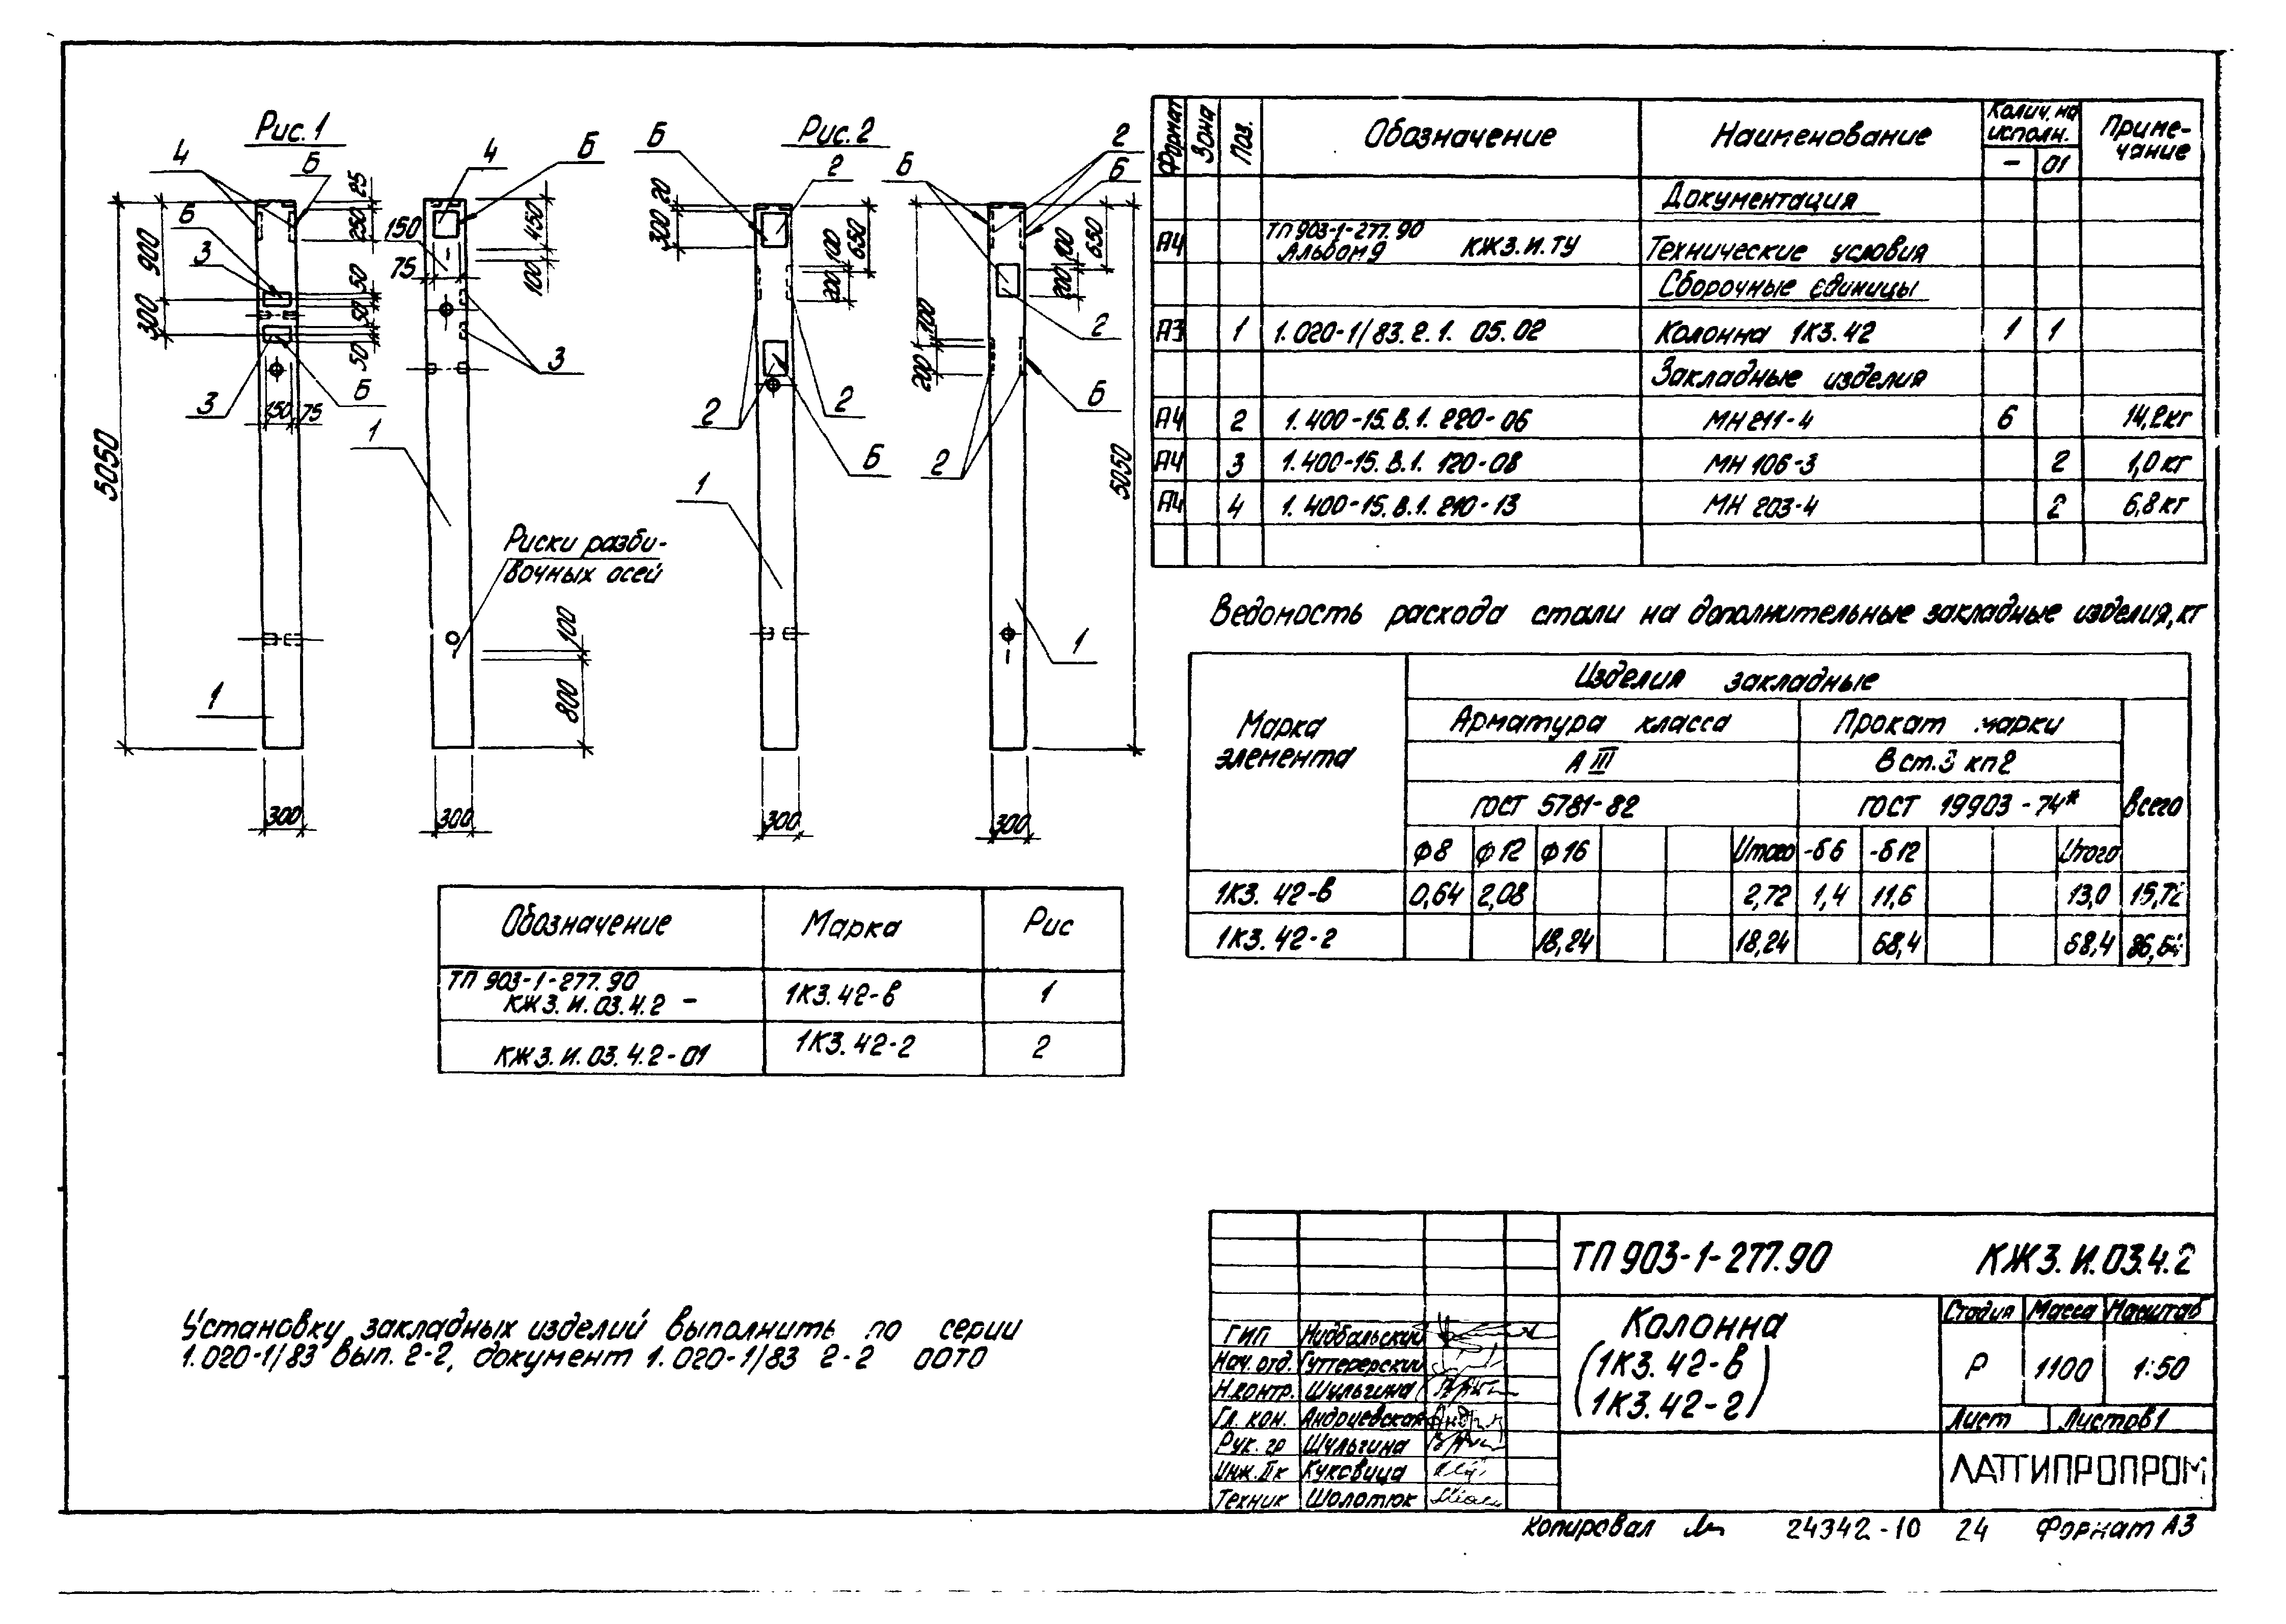 Рис. 1
4
Б
25
250
Б
3
900
300
50
50
50
3
Б
150
75
5050
1
300
4
Б
150
75
450
100
3
1
Риски разби-
вочных осей
100
800
300
Рис. 2
Б
2
20
300
650
100
200
2
2
Б
1
300
2
Б
Б
650
100
200
2
700
200
Б
2
5050
1
300
Формат Зона Поз. Обозначение Наименование Колич. на исполн. Приме-чание
- 01
Документация
А4 ТП 903-1-277.90
Альбом 9 КЖ3.И.ТУ Технические условия
Сборочные единицы
А3 1 1.020-1/83.2.1. 05.02 Колонна 1К3.42 1 1
Закладные изделия
А4 2 1.400-15.В.1. 220-06 МН 211-4 6 14,2кг
А4 3 1.400-15.В.1. 120-08 МН 106-3 2 1,0 кг
А4 4 1.400-15.В.1. 210-13 МН 203-4 2 6,8 кг
Ведомость расхода стали на дополнительные закладные изделия, кг
Марка элемента
Изделия закладные
Арматура класса Прокат марки
А III В ст.3 кп2
ГОСТ 5781-82 ГОСТ 19903-74* Всего
Ф8 Ф12 Ф16 Итого -δ6 -δ12 Итого
1К3. 42-в 0,64 2,08 2,72 1,4 11,6 13,0 15,72
1К3. 42-2 18,24 18,24 68,4 68,4 86,64
Обозначение Марка Рис
ТП 903-1-277.90
КЖ3.И.03.4.2 - 1К3.42-в 1
КЖ3.И.03.4.2-01 1К3.42-2 2
Установку закладных изделий выполнить по серии
1.020-1/83 вып. 2-2, документ 1.020-1/83 2-2 00ТО
ТП 903-1-277.90 КЖ3.И.03.4.2
Колонна
(1К3.42-в)
(1К3.42-2)
Стадия Масса Масштаб
Р 1100 1:50
Лист Листов 1
ЛАТГИПРОПРОМ
ГИП Нидбальский
Нач. отд. Гуттерерский
Н.контр. Шульгина
Гл. кон. Андриевская
Рук. гр Шульгина
Инж. IIк Куковица
Техник Шолотюк
Копировал 24342-10 24 Формат А3